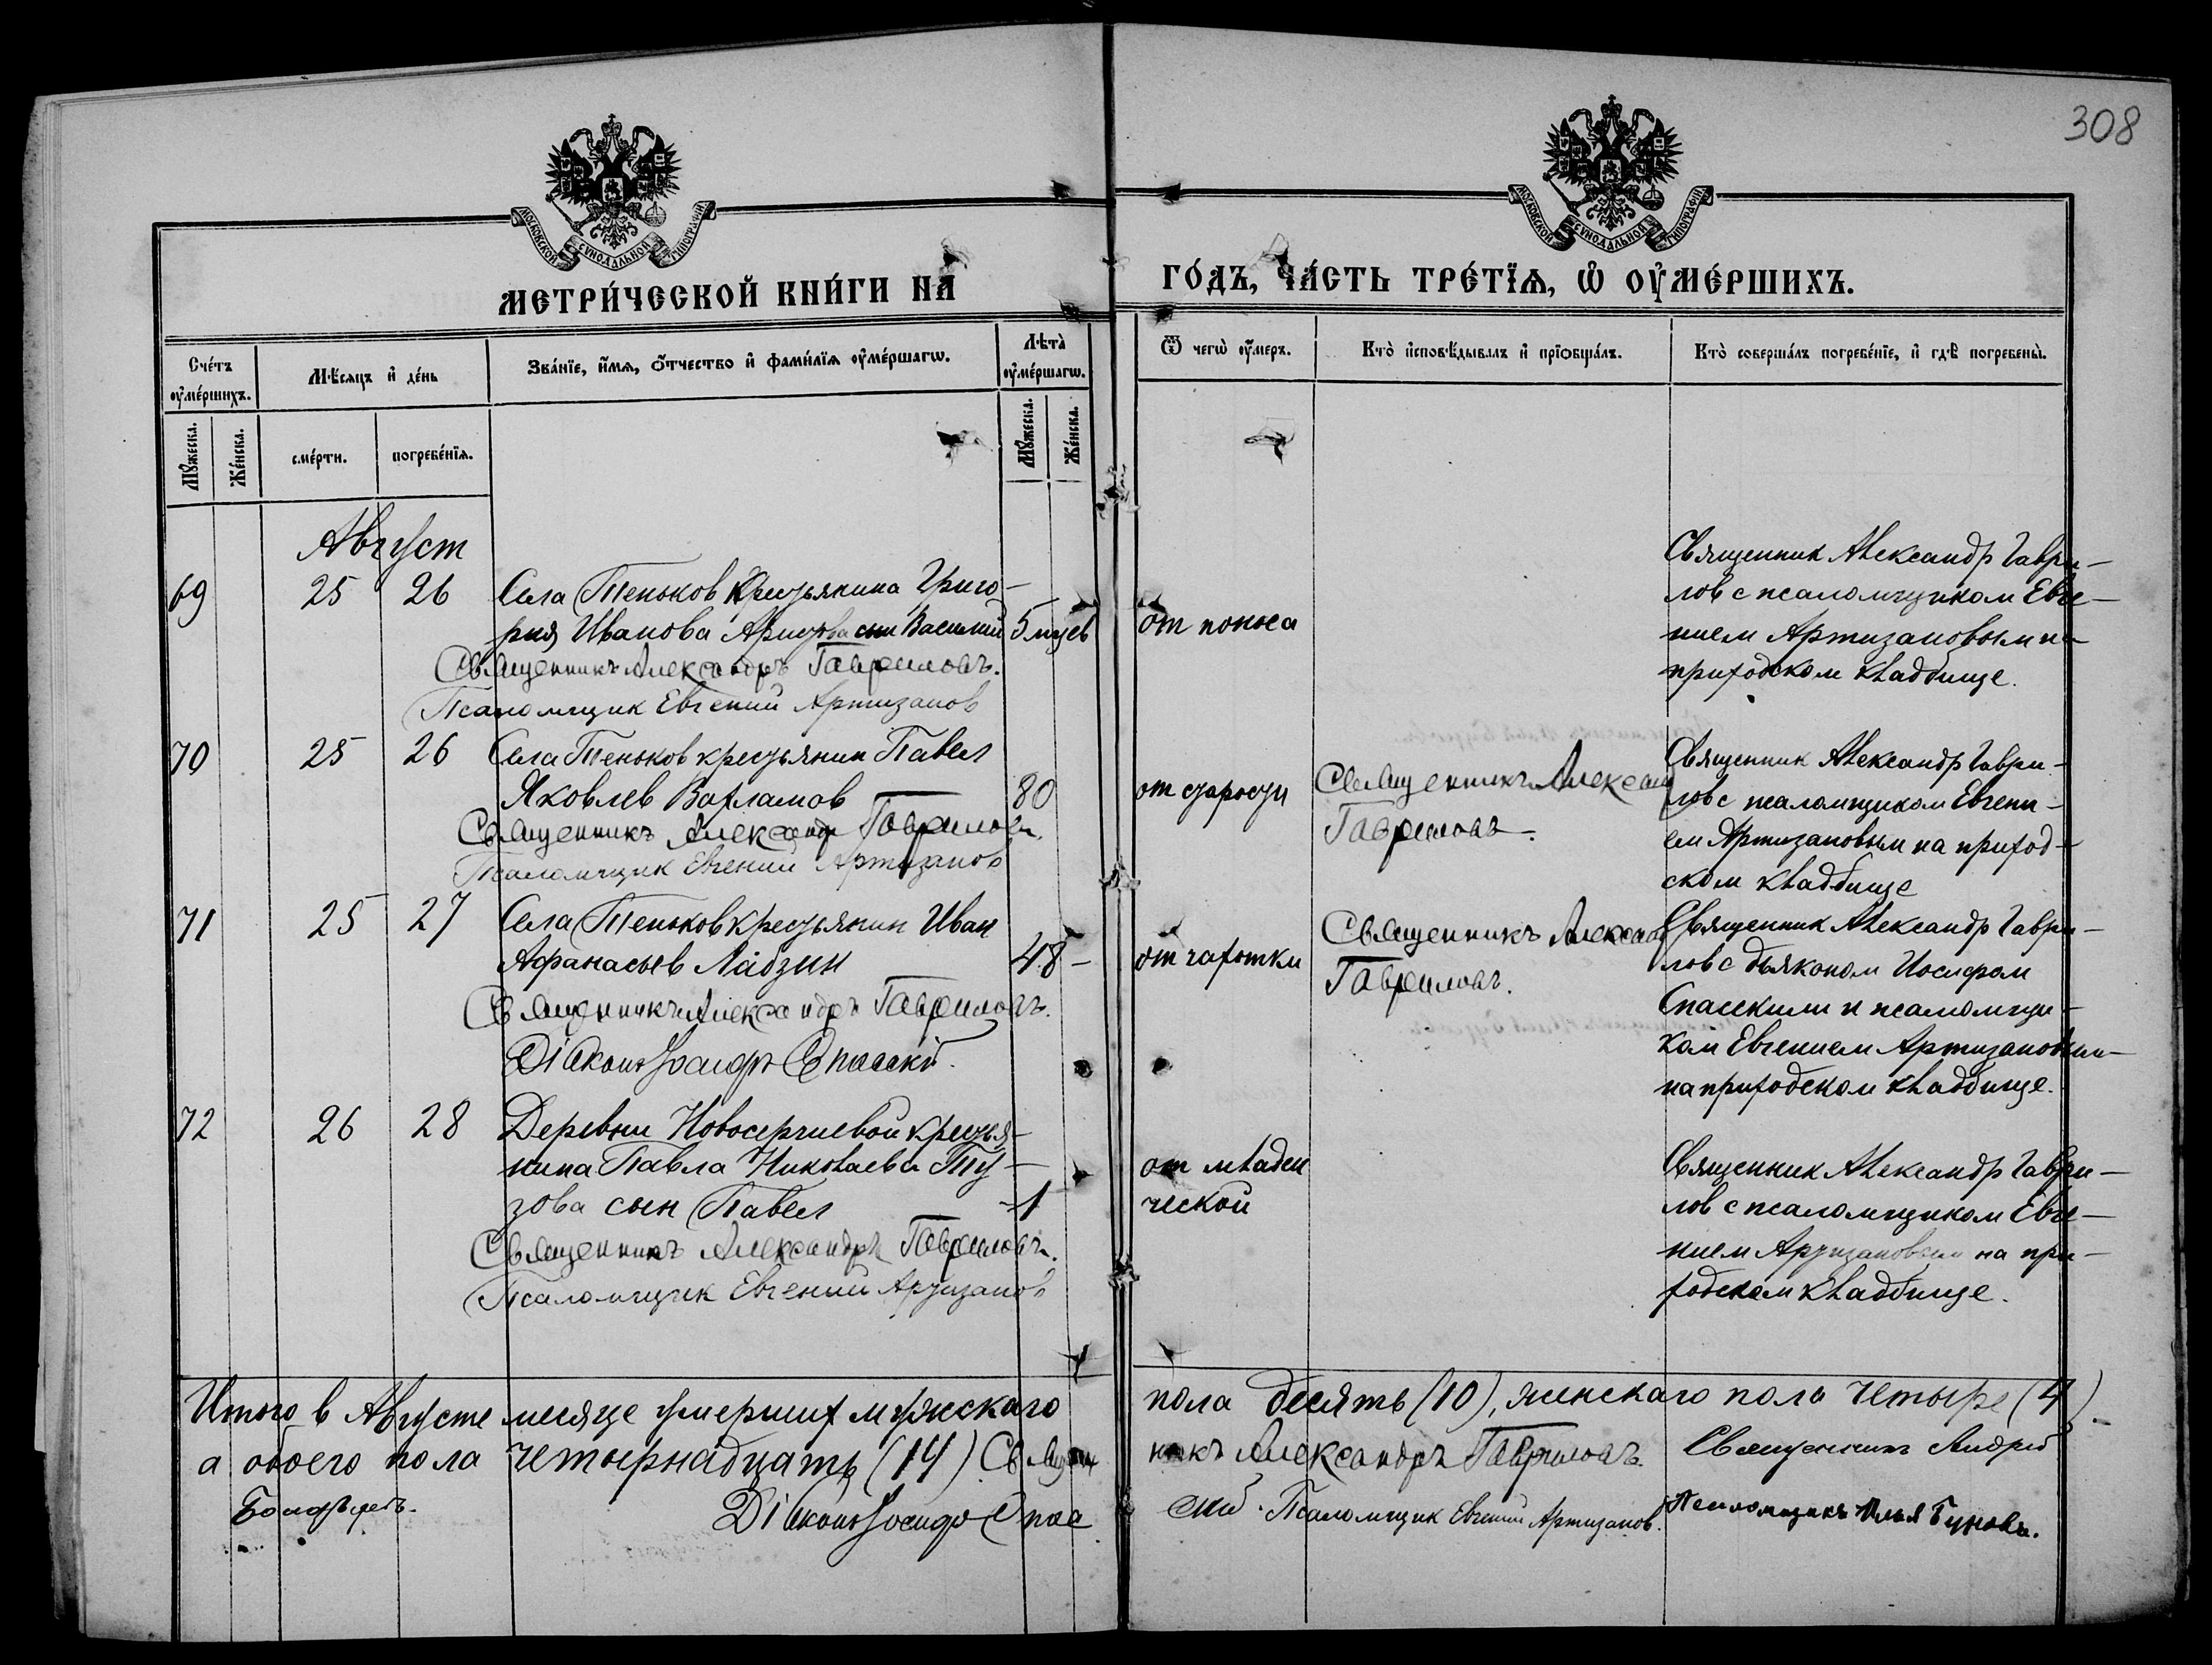 308
МОСКОВСКОЙ СУНОДАЛЬНОЙ ТИПОГРАФІИ
МОСКОВСКОЙ СУНОДАЛЬНОЙ ТИПОГРАФІИ
МЕТРИ́ЧЕСКОЙ КНИ́ГИ НА
ГО́ДЪ, ЧА́СТЬ ТРЕ́ТЇѦ, Ѡ҆ ОУ҆МЕ́РШИХЪ.
Сче́тъ оу҆ме́ршихъ.
Мѣ́сяцъ и҆ де́нь
Зва́нїе, и҆́мѧ, ѻ҆́тчество и҆ фами́лїѧ оу҆ме́ршагѡ.
Лѣта̀ оу҆ме́ршагѡ.
Ѿ чегѡ̀ оу҆́меръ.
Кто̀ и҆сповѣ́дывалъ и҆ прїѻбща́лъ.
Кто̀ соверша́лъ погребе́нїе, и҆ гдѣ̀ погребены̀.
Мꙋ́жеска.
Же́нска.
сме́рти.
погребе́нїѧ.
Мꙋ́жеска.
Же́нска.
Август
69 25 26 Села Теньков крестьянина Григо-
рия Иванова Аристова сын Василий 5 мцев
Священникъ Александръ Гавриловъ.
Псаломщик Евгений Артизанов
от поноса
Священник Александр Гаври-
лов с псаломщиком Евге-
нием Артизановым на
приходском кладбище.
70 25 26 Села Теньков крестьянин Павел
Яковлев Варламов 80
Священникъ Александр Гавриловъ.
Псаломщик Евгений Артизанов
от старости
Священникъ Александ
Гавриловъ.
Священник Александр Гаври-
лов с псаломщиком Евгени-
ем Артизановым на приход-
ском кладбище
71 25 27 Села Теньков крестьянин Иван
Афанасьев Лабзин 48 -
Священникъ Александръ Гавриловъ.
Діаконъ Іосифъ Спасскій.
от чахотки
Священникъ Александ
Гавриловъ.
Священник Александр Гаври-
лов с дьяконом Иосифом
Спасским и псаломщи-
ком Евгением Артизановым-
на приходском кладбище.
72 26 28 Деревни Новосергиевой крестья-
нина Павла Николаева Ту-
зова сын Павел -1
Священникъ Александръ Гавриловъ.
Псаломщик Евгений Артизанов
от младен
ческой
Священник Александр Гаври-
лов с псаломщиком Евге-
нием Артизановым на при-
ходском кладбище.
Итого в Августе месяце умерших мужскаго пола десять (10), женскаго пола четыре (4)
а обоего пола четырнадцать (14). Священникъ Александръ Гавриловъ. Священникъ Андрей
Діаконъ Іосифъ Спасскій. Псаломщик Евгений Артизанов. Псаломщикъ Илья